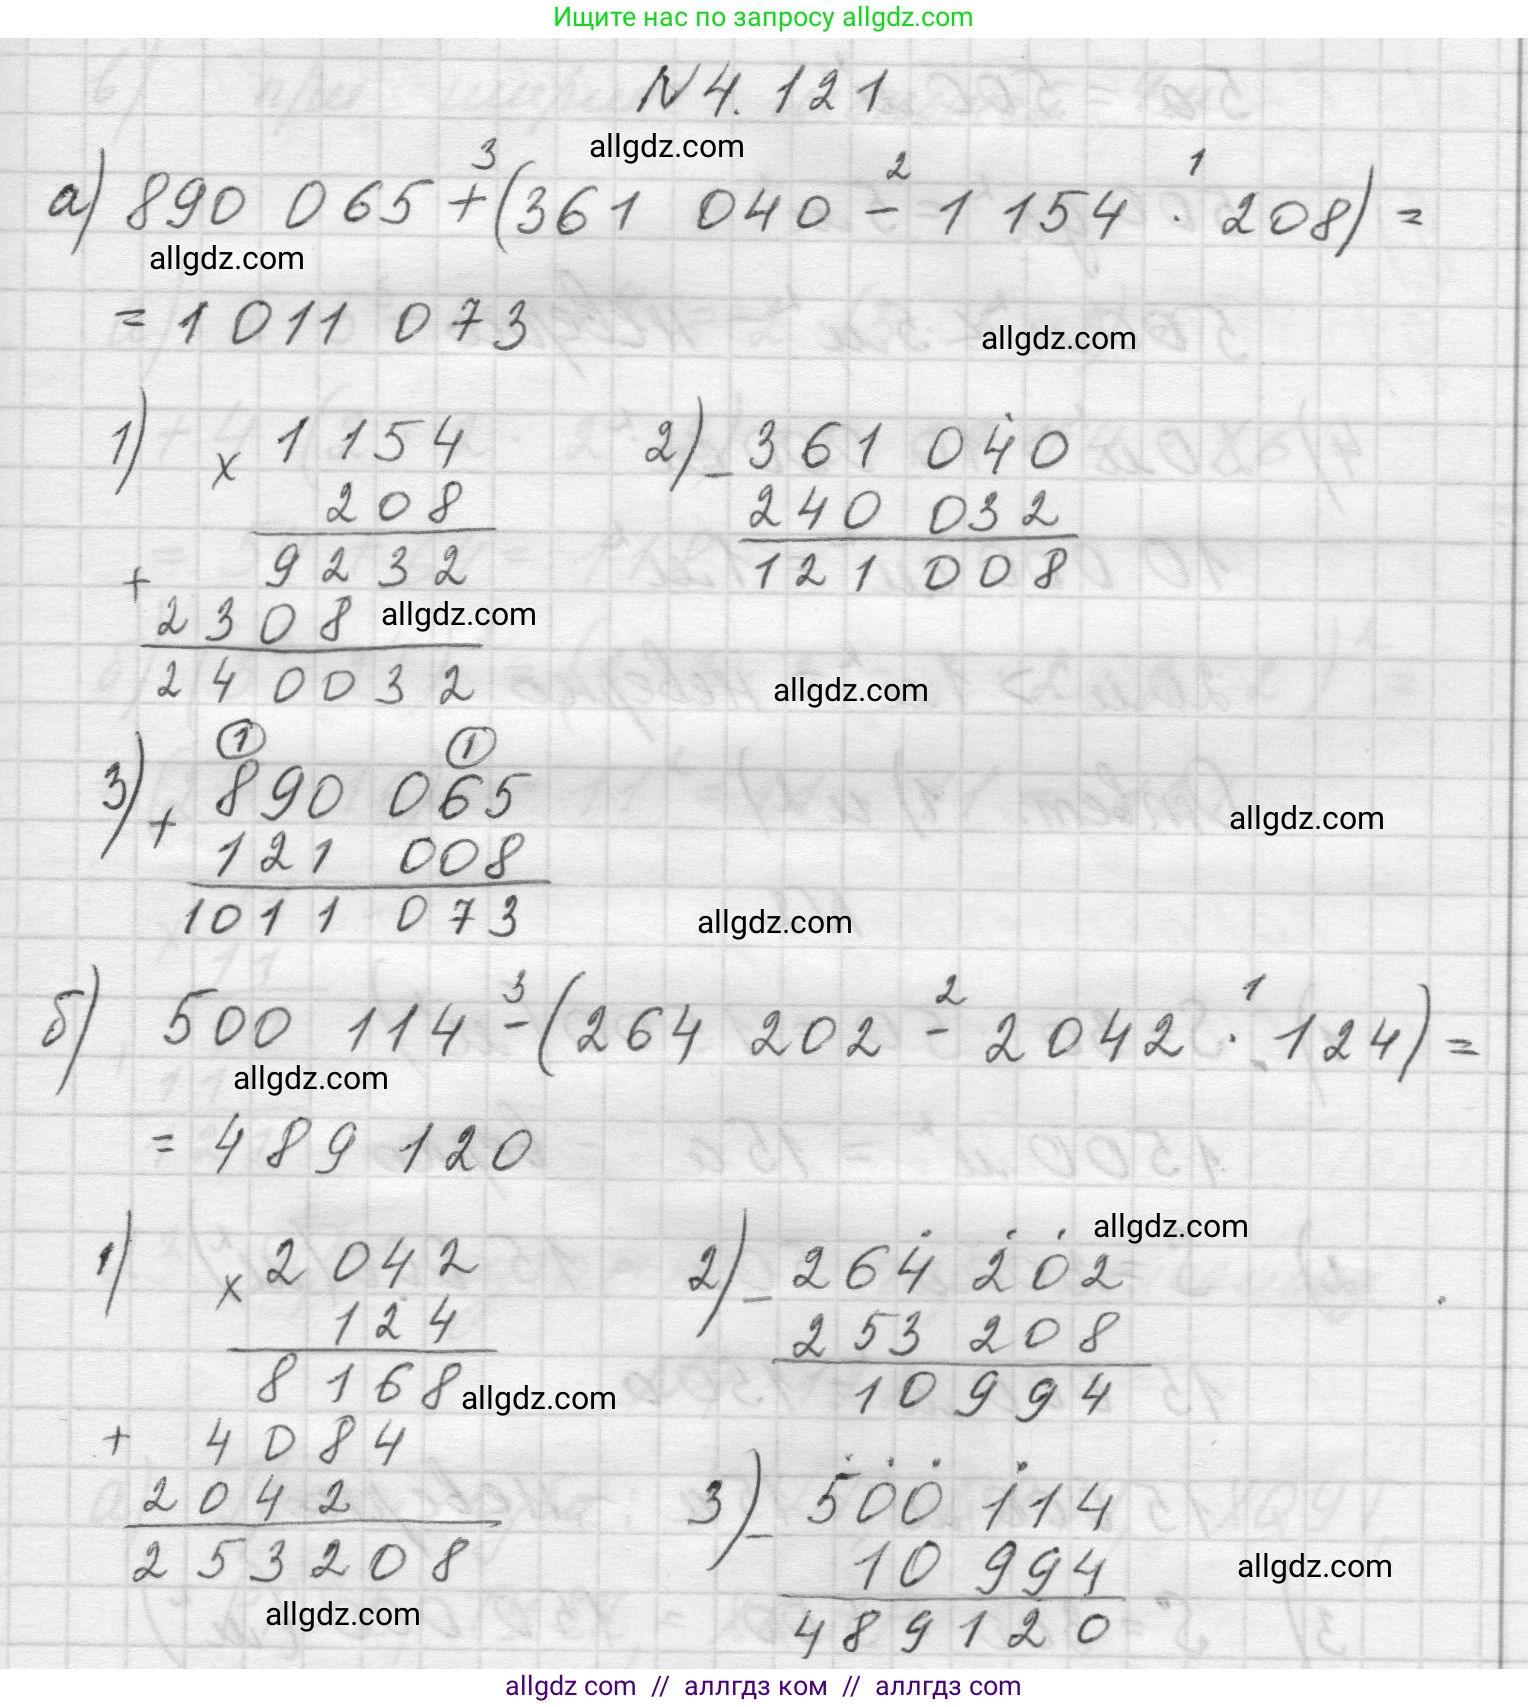 Ищите нас по запросу allgdz.com
N 4. 121
allgdz.com
3 2 1
а) 890 065 + (361 040 - 1 154 · 208) =
allgdz.com
= 1 011 073
allgdz.com
1) × 1 154
208
9232
+ 2308
240032
allgdz.com
2) - 361 040
240 032
121 008
allgdz.com
1 1
3) + 890 065
121 008
1011 073
allgdz.com
allgdz.com
3 2 1
б) 500 114 - (264 202 - 2042 · 124) =
allgdz.com
= 489 120
1) × 2042
124
8168
+ 4084
2042
253208
allgdz.com
allgdz.com
allgdz.com
2) - 264 202
253 208
10 994
3) - 500 114
10 994
489120
allgdz.com
allgdz.com // аллгдз ком // аллгдз com